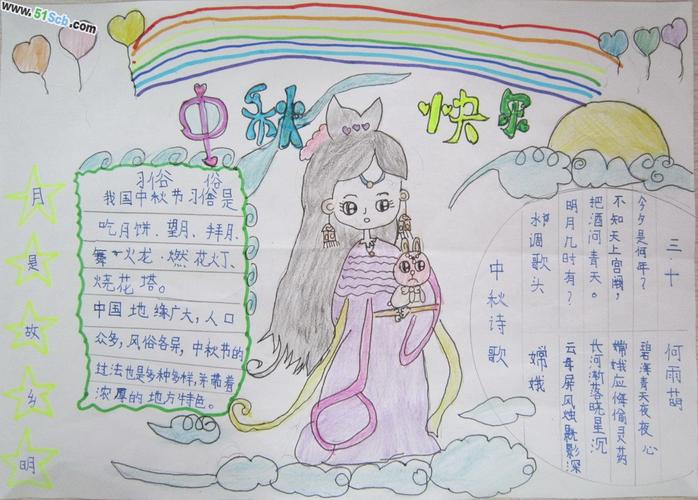 www.51Scb.com
中秋快乐
月是故乡明
习俗 俗
我国中秋节习俗是
吃月饼、望月、拜月、
舞火龙·燃花灯、
烧花塔。
中国地缘广大,人口
众多,风俗各异,中秋节的
过法也是多种多样,并带着
浓厚的地方特色。
三十
何雨葫
今夕是何年?
不知天上宫阙,
把酒问青天。
明月几时有?
水调歌头
碧海青天夜夜心
嫦娥应悔偷灵药
长河渐落晓星沉
云母屏风烛影深
嫦娥
中秋诗歌